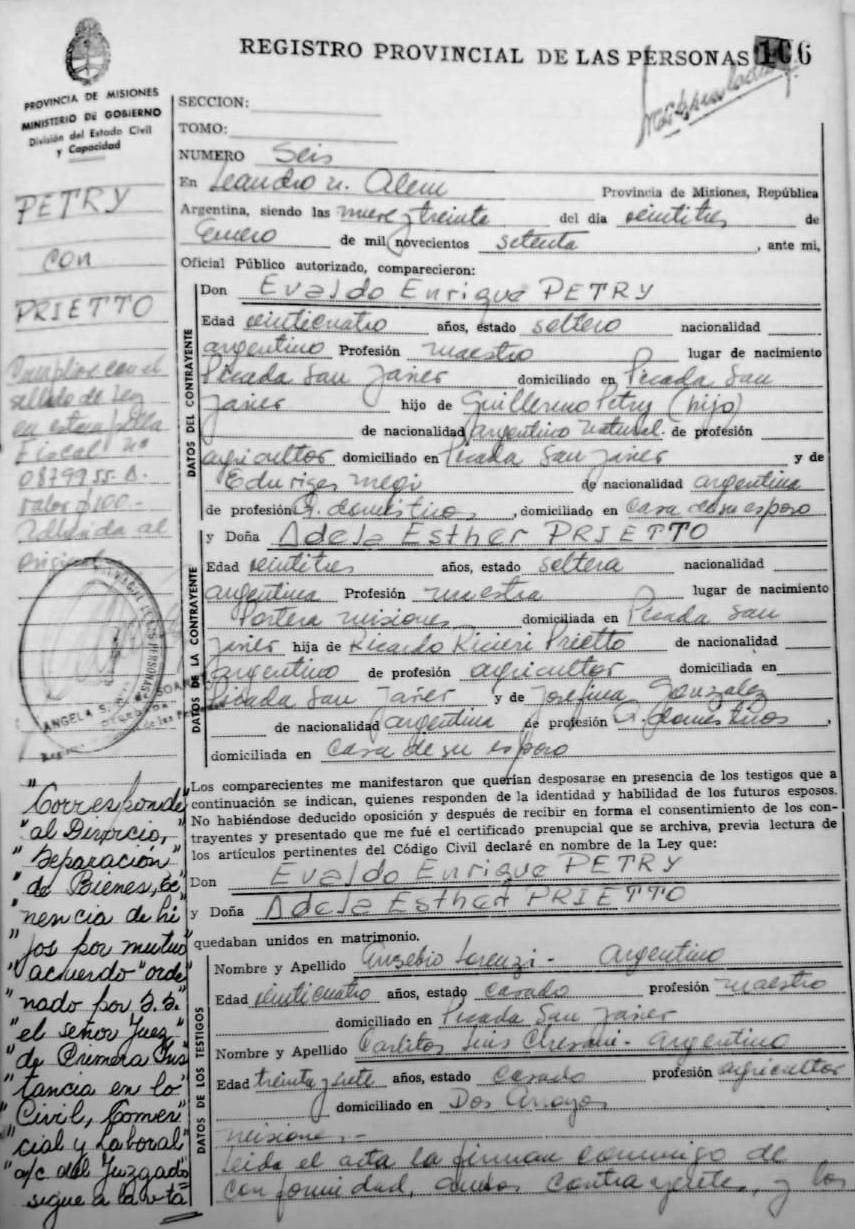 REGISTRO PROVINCIAL DE LAS PERSONAS 166
PROVINCIA DE MISIONES
MINISTERIO DE GOBIERNO
División del Estado Civil
y Capacidad
PETRY
CON
PRIETTO
Cumplios con el
sellado de Ley
en estampilla
Fiscal nº
0879955-A.
valor $100.-
adherida al
original
ANGELA S.
"Corresponde
"al Divorcio,
"Separación
"de Bienes, te
nencia de hi
"jos por mutuo
"acuerdo "orde
"nado por S.S.
"el señor Juez
"de Primera Ins
"tancia en lo
"Civil, Comer
"cial y Laboral
"a/c del Juzgado
sigue a la vta
SECCION:
TOMO:
NUMERO Seis
En Leandro N. Alem Provincia de Misiones, República
Argentina, siendo las nueve y treinta del día veintitres de
Enero de mil novecientos setenta, ante mi,
Oficial Público autorizado, comparecieron:
DATOS DEL CONTRAYENTE
Don Evaldo Enrique PETRY
Edad veinticuatro años, estado soltero nacionalidad
argentino Profesión maestro lugar de nacimiento
Picada San Javier domiciliado en Picada San
Javier hijo de Guillermo Petry (hijo)
de nacionalidad argentino natural. de profesión
agricultor domiciliado en Picada San Javier y de
Eduriges de nacionalidad argentina
de profesión Q. domésticos, domiciliado en casa de su esposo
DATOS DE LA CONTRAYENTE
y Doña Adela Esther PRIETTO
Edad veintitres años, estado soltera nacionalidad
argentina Profesión maestra lugar de nacimiento
misiones domiciliada en Picada San
Javier hija de Ricardo Ricieri Prietto de nacionalidad
argentino de profesión agricultor domiciliada en
Picada San Javier y de Josefina Gonzalez
de nacionalidad argentina de profesión Q. domesticos,
domiciliada en casa de su esposo
Los comparecientes me manifestaron que querían desposarse en presencia de los testigos que a
continuación se indican, quienes responden de la identidad y habilidad de los futuros esposos.
No habiéndose deducido oposición y después de recibir en forma el consentimiento de los con-
trayentes y presentado que me fué el certificado prenupcial que se archiva, previa lectura de
los artículos pertinentes del Código Civil declaré en nombre de la Ley que:
Don Evaldo Enrique PETRY
y Doña Adela Esther PRIETTO
quedaban unidos en matrimonio.
DATOS DE LOS TESTIGOS
Nombre y Apellido Eusebio Lorenzi - Argentino
Edad veinticuatro años, estado casado profesión maestro
domiciliado en Picada San Javier
Nombre y Apellido Carlitos Luis - argentino
Edad treinta y siete años, estado casado profesión agricultor
domiciliado en Dos Arroyos
misiones.-
Leida el acta la firman conmigo de
conformidad, ambos contrayentes, y los